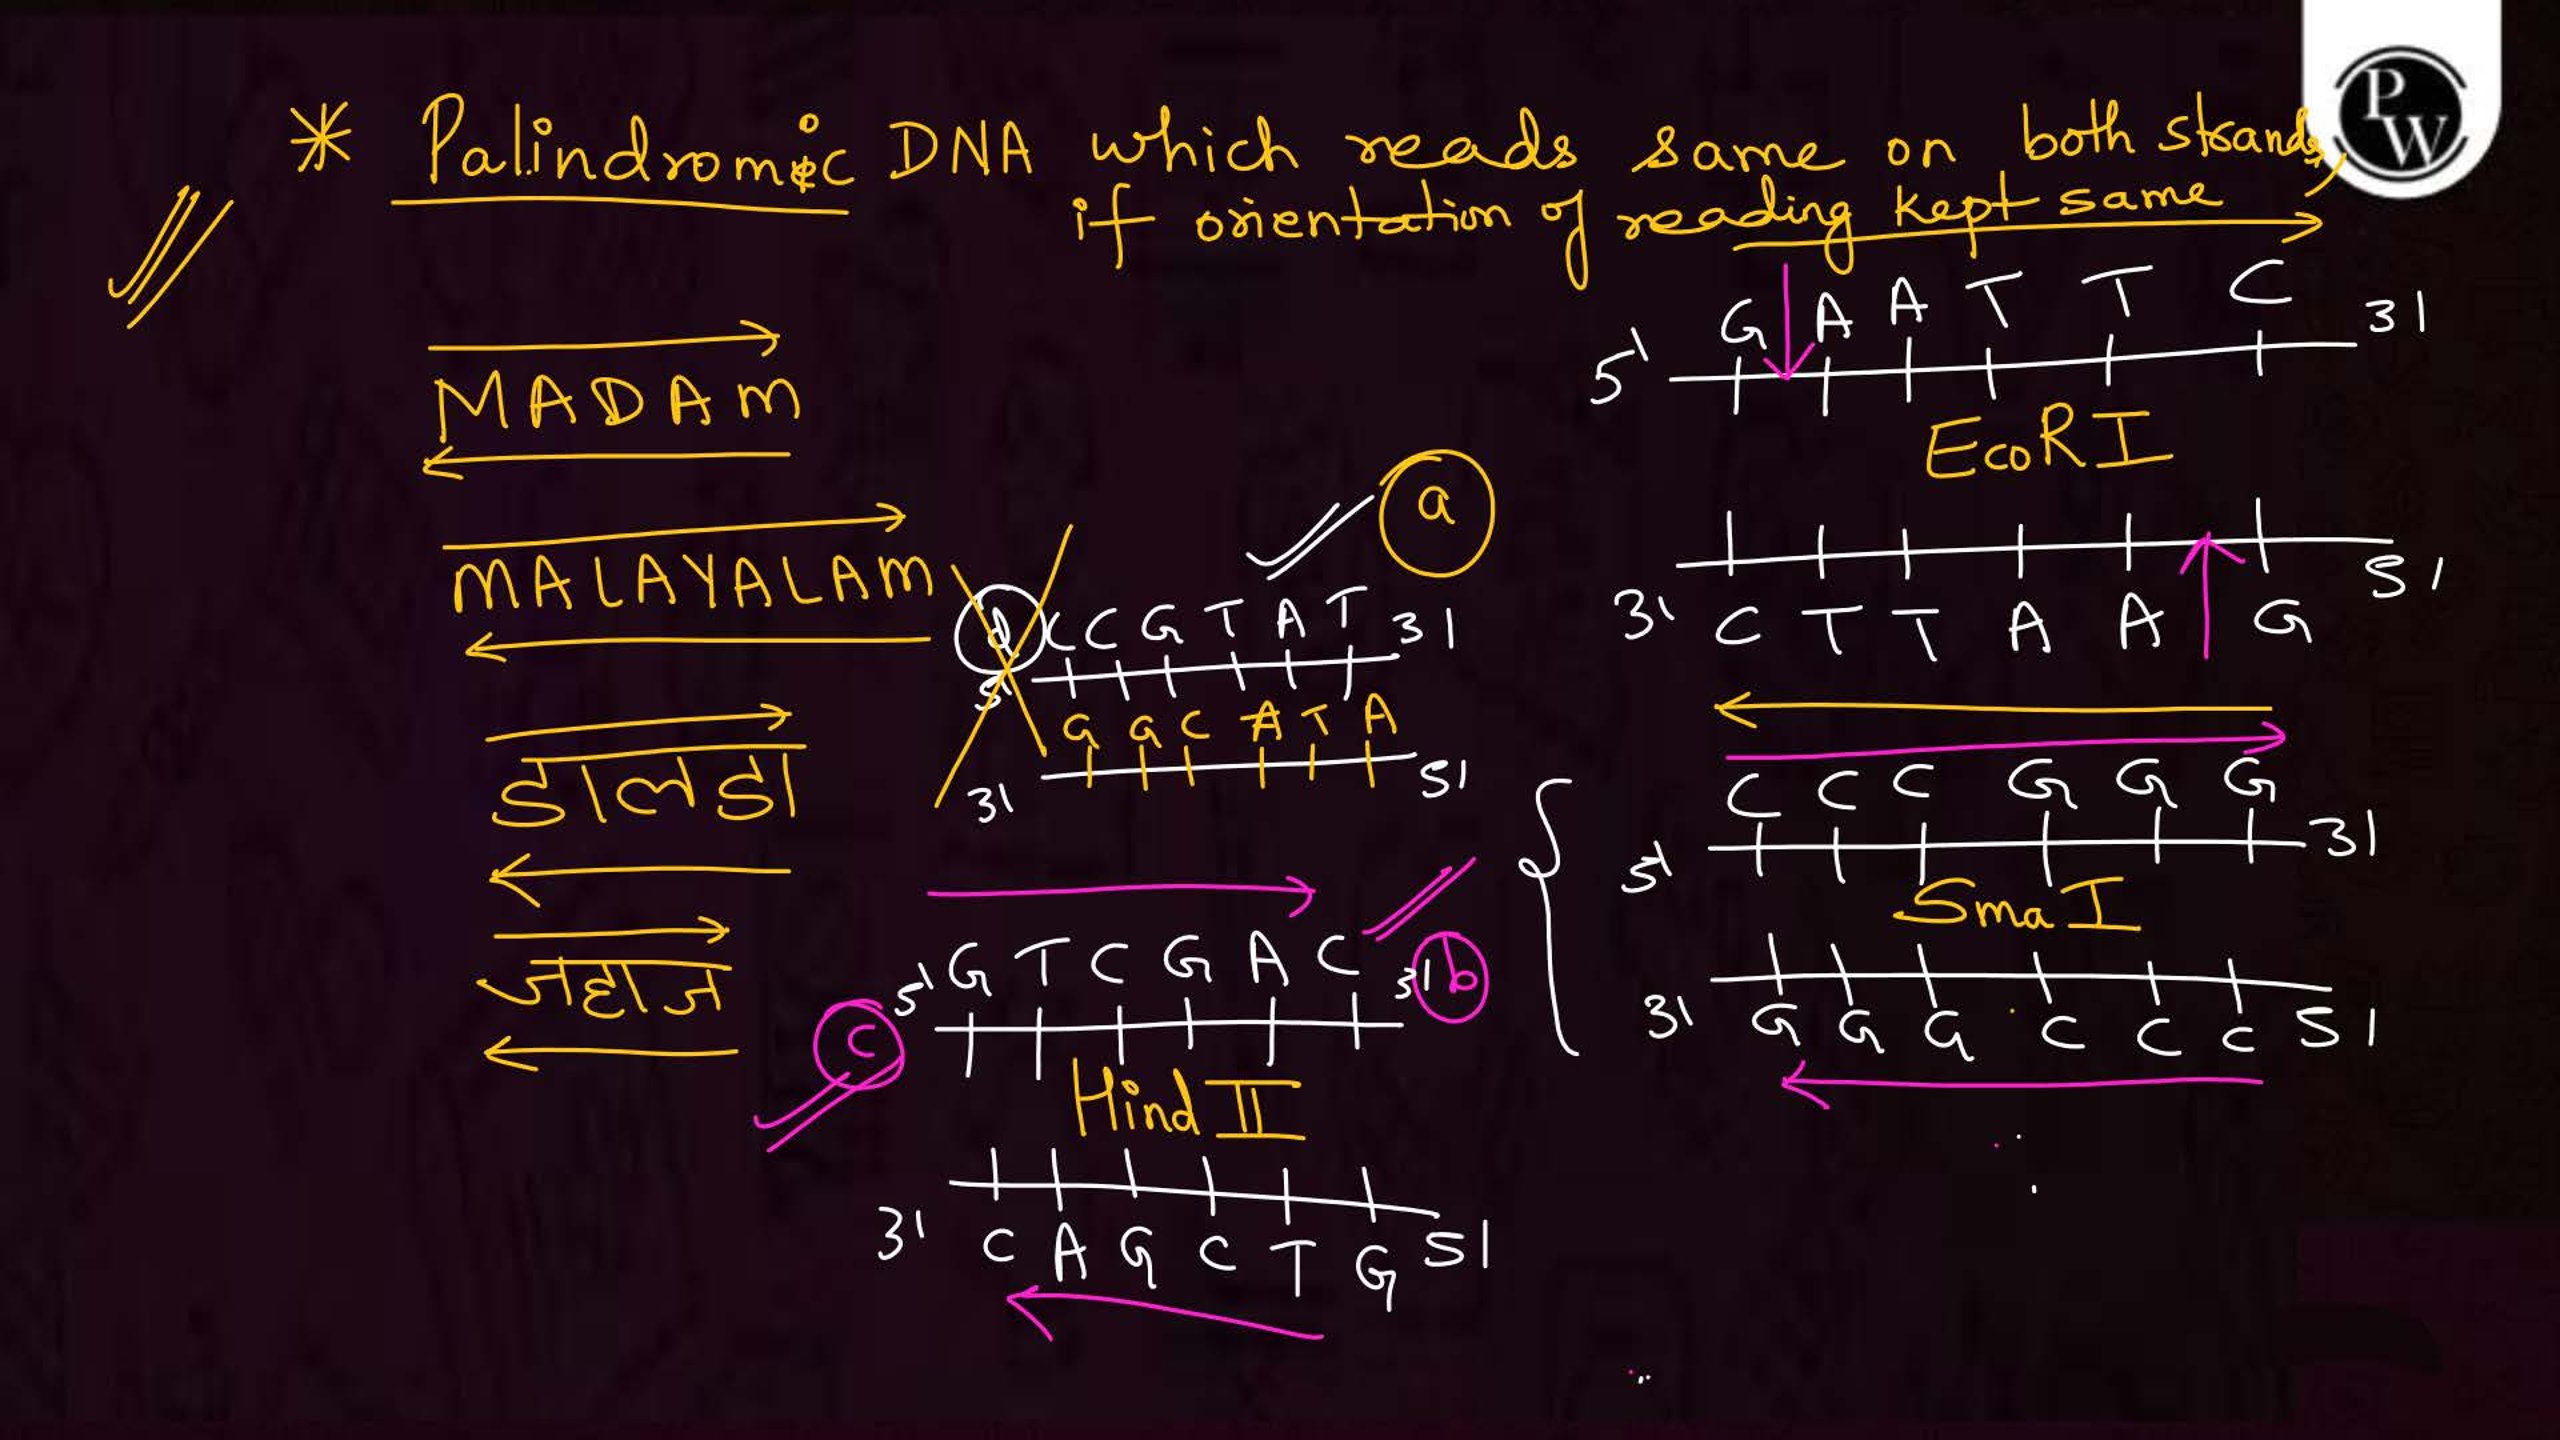 * Palindromic DNA which reads same on both strands,
if orientation of reading kept same
PW
MADAM
MALAYALAM
डालडा
जहाज
a
d CCGTAT 3'
5'
GGCATA
3' 5'
5' GTCGAC 3' b
c
Hind II
3' CAGCTG 5'
GAATTC 3'
5'
EcoRI
3' CTTAAG 5'
CCCGGG
5' 3'
Sma I
3' GGGCCC 5'